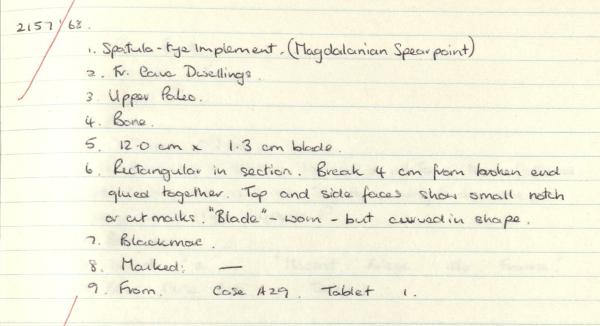 2157'63.
1. Spatula-tye Implement. (Magdalanian Spearpoint)
2. Fr. Cave Dwellings.
3. Upper Paleo.
4. Bone.
5. 12.0 cm x 1.3 cm blade.
6. Rectangular in section. Break 4 cm from broken end
glued together. Top and side faces show small notch
or cut marks. "Blade" - worn - but curved in shape.
7. Blackmore.
8. Marked: —
9. From. Case A29. Tablet 1.